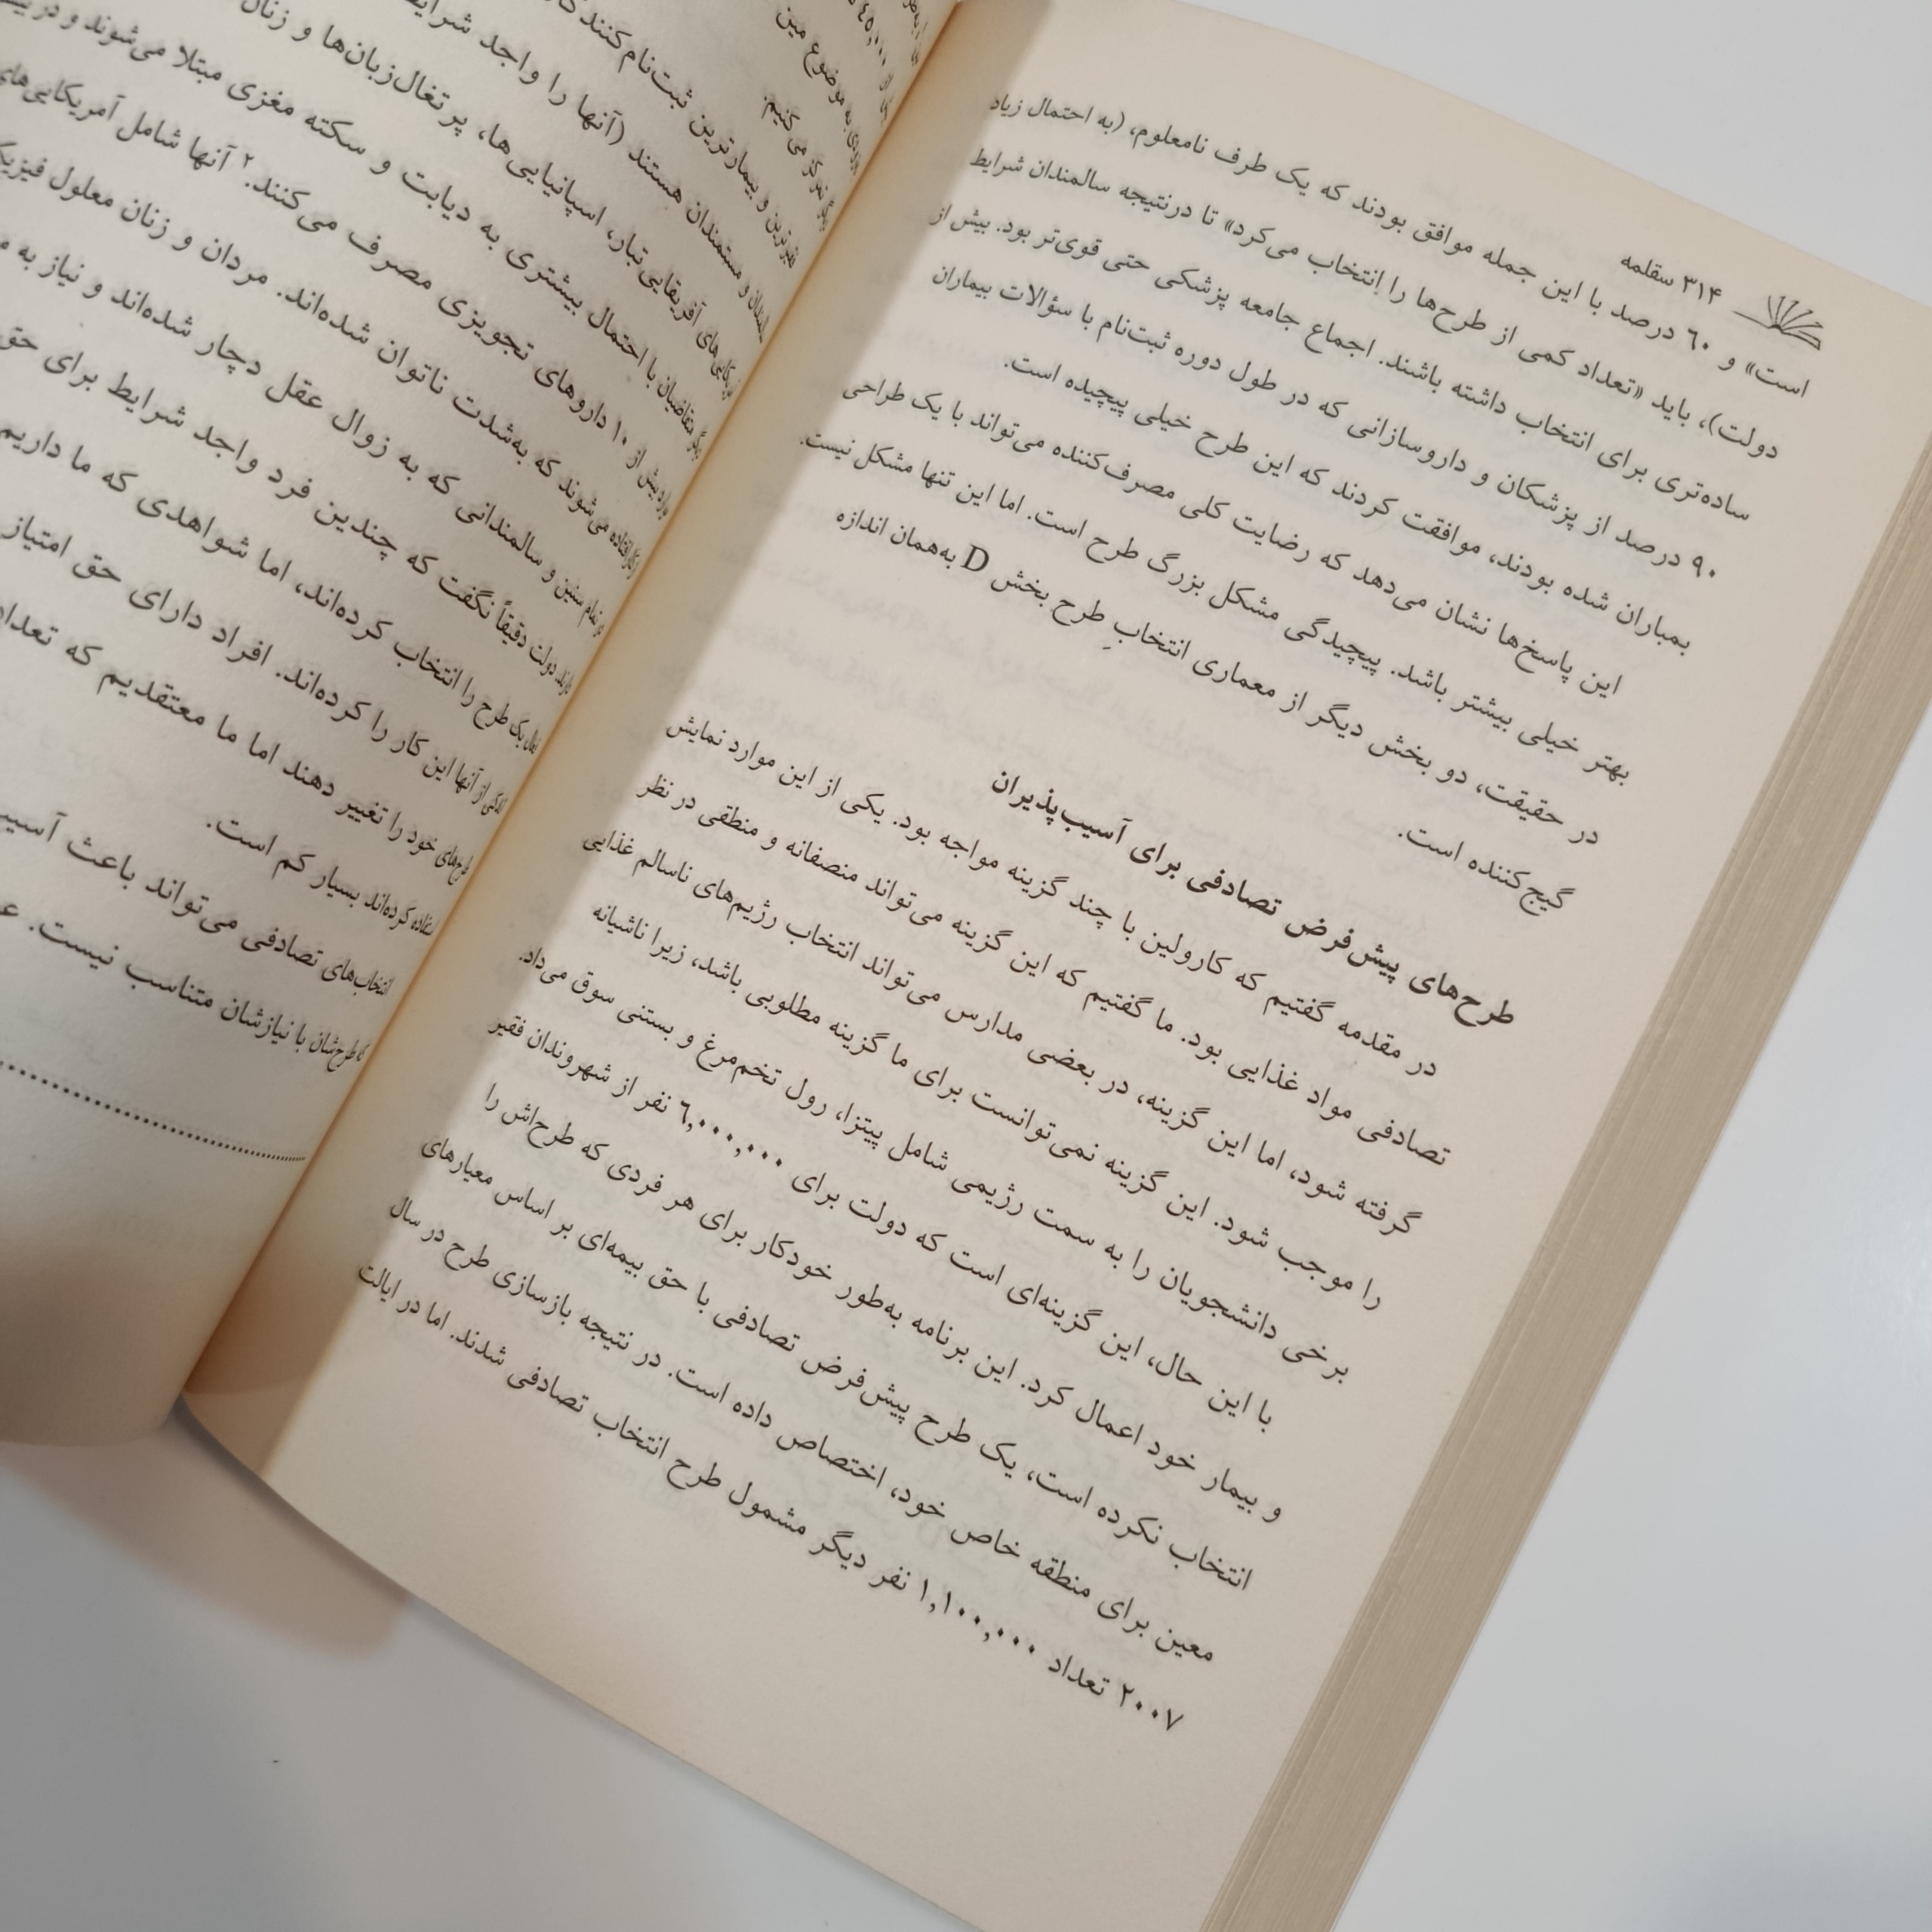 ۳۱۴ سقلمه
است» و ۶۰ درصد با این جمله موافق بودند که یک طرف نامعلوم، (به احتمال زیاد
دولت)، باید «تعداد کمی از طرح‌ها را انتخاب می‌کرد» تا درنتیجه سالمندان شرایط
ساده‌تری برای انتخاب داشته باشند. اجماع جامعه پزشکی حتی قوی‌تر بود. بیش از
۹۰ درصد از پزشکان و داروسازانی که در طول دوره ثبت‌نام با سؤالات بیماران
بمباران شده بودند، موافقت کردند که این طرح خیلی پیچیده است.
این پاسخ‌ها نشان می‌دهد که رضایت کلی مصرف‌کننده می‌تواند با یک طراحی
بهتر خیلی بیشتر باشد. پیچیدگی مشکل بزرگ طرح است. اما این تنها مشکل نیست.
در حقیقت، دو بخش دیگر از معماری انتخابِ طرح بخش D به‌همان اندازه
گیج‌کننده است.
طرح‌های پیش‌فرض تصادفی برای آسیب‌پذیران
در مقدمه گفتیم که کارولین با چند گزینه مواجه بود. یکی از این موارد نمایش
تصادفی مواد غذایی بود. ما گفتیم که این گزینه می‌تواند منصفانه و منطقی در نظر
گرفته شود، اما این گزینه، در بعضی مدارس می‌تواند انتخاب رژیم‌های ناسالم غذایی
را موجب شود. این گزینه نمی‌توانست برای ما گزینه مطلوبی باشد، زیرا ناشیانه
برخی دانشجویان را به سمت رژیمی شامل پیتزا، رول تخم‌مرغ و بستنی سوق می‌داد.
با این حال، این گزینه‌ای است که دولت برای ۶,۰۰۰,۰۰۰ نفر از شهروندان فقیر
و بیمار خود اعمال کرد. این برنامه به‌طور خودکار برای هر فردی که طرح‌اش را
انتخاب نکرده است، یک طرح پیش‌فرض تصادفی با حق بیمه‌ای بر اساس معیارهای
معین برای منطقه خاص خود، اختصاص داده است. در نتیجه بازسازی طرح در سال
۲۰۰۷ تعداد ۱,۱۰۰,۰۰۰ نفر دیگر مشمول طرح انتخاب تصادفی شدند. اما در ایالت
موضوع مین
می‌کنیم.
و بیمارترین ثبت‌نام‌کنندگان
و مستمندان هستند (آنها را واجد شرایط
آفریقایی تبار، اسپانیایی‌ها، پرتغال‌زبان‌ها و زنان
با احتمال بیشتری به دیابت و سکته مغزی مبتلا می‌شوند و در
بیش از ۱۰ داروهای تجویزی مصرف می‌کنند.۲ آنها شامل آمریکایی‌های
می‌شوند که به‌شدت ناتوان شده‌اند. مردان و زنان معلول
سنین و سالمندانی که به زوال عقل دچار شده‌اند و نیاز به
دولت دقیقاً نگفت که چندین فرد واجد شرایط برای حق
یک طرح را انتخاب کرده‌اند، اما شواهدی که ما داریم
از آنها این کار را کرده‌اند. افراد دارای حق امتیاز
طرح‌های خود را تغییر دهند اما ما معتقدیم که تعداد
استفاده کرده‌اند بسیار کم است.
انتخاب‌های تصادفی می‌تواند باعث
طرح‌شان با نیازشان متناسب نیست.